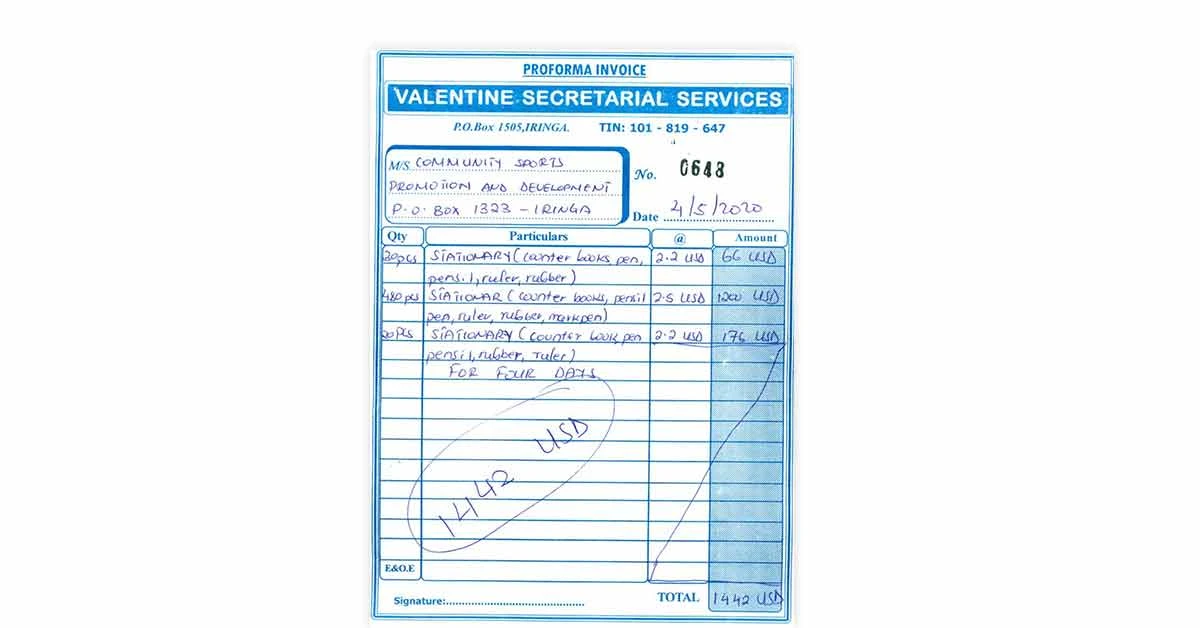 PROFORMA INVOICE
VALENTINE SECRETARIAL SERVICES
P.O.Box 1505,IRINGA. TIN: 101 - 819 - 647
M/S COMMUNITY SPORTS
PROMOTION AND DEVELOPMENT
P.O. BOX 1323 - IRINGA
No. 0648
Date 4/5/2020
Qty Particulars @ Amount
30pcs STATIONARY (counter books, pen, 2.2 USD 66 USD
pensil, ruler, rubber)
480 pcs STATIONAR (counter books, pensil 2.5 USD 1200 USD
pen, ruler, rubber, markpen)
20pcs STATIONARY (counter book, pen 2.2 USD 176 USD
pensil, rubber, ruler)
FOR FOUR DAYS
1442 USD
E&O.E
Signature: TOTAL 1442 USD